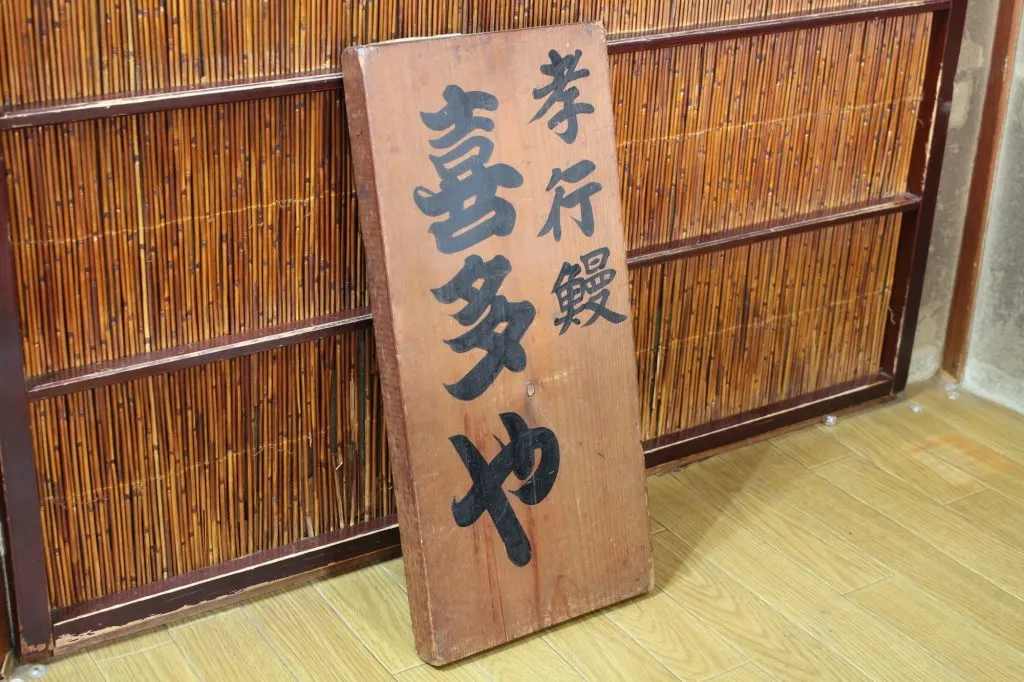 孝行鰻
喜多や